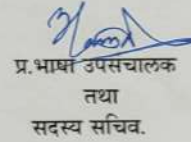 प्र.भाषा उपसंचालक
तथा
सदस्य सचिव.